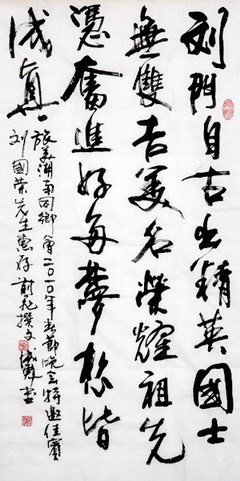 刘門自古出精英國士
無雙吉美名榮耀祖先
憑奮進好每夢想皆
成真
旅美湖南同鄉會二〇一〇年春節晚会特邀佳賓
刘國荣先生惠存 撰文